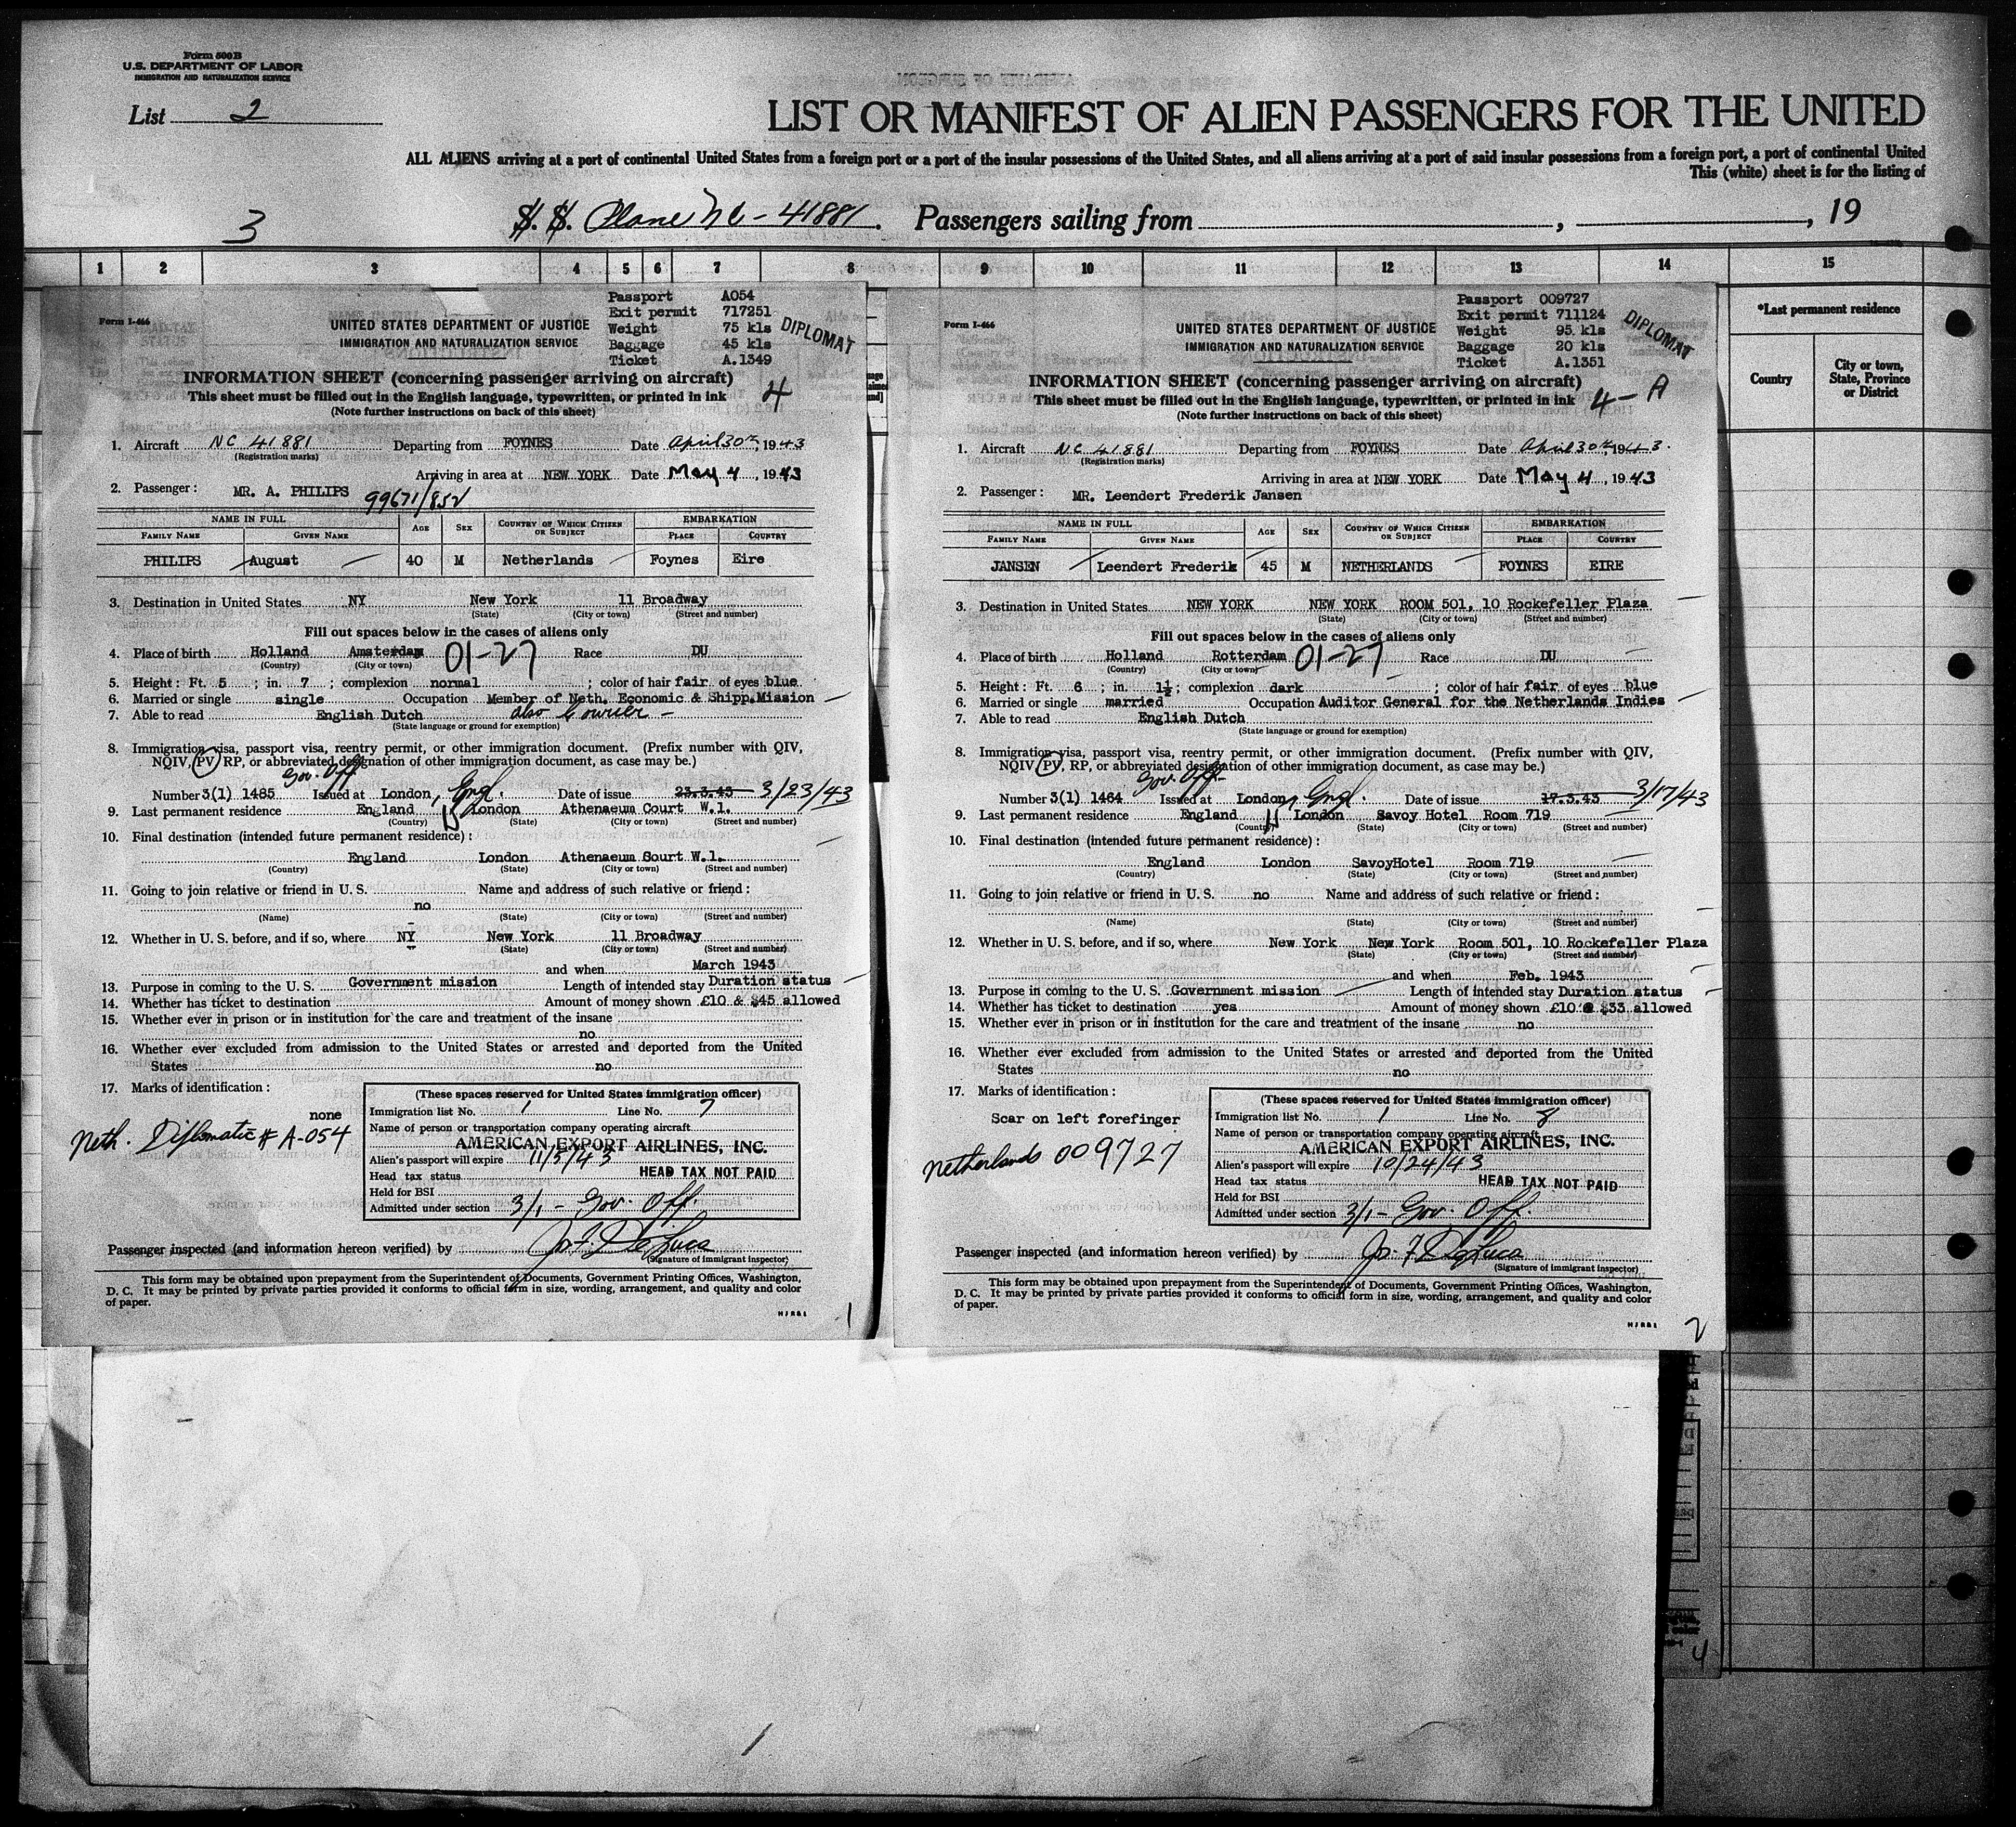 Form 500B
U.S. DEPARTMENT OF LABOR
IMMIGRATION AND NATURALIZATION SERVICE
List 2
LIST OR MANIFEST OF ALIEN PASSENGERS FOR THE UNITED
ALL ALIENS arriving at a port of continental United States from a foreign port or a port of the insular possessions of the United States, and all aliens arriving at a port of said insular possessions from a foreign port, a port of continental United
This (white) sheet is for the listing of
3
S. S. Plane NC-41881. Passengers sailing from , , 19
1 2 3 4 5 6 7 8 9 10 11 12 13 14 15
*Last permanent residence
Country
City or town, State, Province or District
Form I-466
Passport A054
Exit permit 717251
Weight 75 kls
Baggage 45 kls
Ticket A.1349
DIPLOMAT
UNITED STATES DEPARTMENT OF JUSTICE
IMMIGRATION AND NATURALIZATION SERVICE
INFORMATION SHEET (concerning passenger arriving on aircraft)
This sheet must be filled out in the English language, typewritten, or printed in ink
4
(Note further instructions on back of this sheet)
1. Aircraft NC 41881 Departing from FOYNES Date April 30th, 1943
(Registration marks)
Arriving in area at NEW YORK Date May 4, 1943
2. Passenger: MR. A. PHILIPS 99671/852
NAME IN FULL AGE SEX COUNTRY OF WHICH CITIZEN OR SUBJECT EMBARKATION
FAMILY NAME GIVEN NAME PLACE COUNTRY
PHILIPS August 40 M Netherlands Foynes Eire
3. Destination in United States NY New York 11 Broadway
(State) (City or town) (Street and number)
Fill out spaces below in the cases of aliens only
4. Place of birth Holland Amsterdam 01-27 Race DU
(Country) (City or town)
5. Height: Ft. 5; in. 7; complexion normal; color of hair fair of eyes blue
6. Married or single single Occupation Member of Neth. Economic & Shipp.Mission
7. Able to read English Dutch also Courier -
(State language or ground for exemption)
8. Immigration visa, passport visa, reentry permit, or other immigration document. (Prefix number with QIV,
NQIV, PV, RP, or abbreviated designation of other immigration document, as case may be.)
Gov. Off.
Number 3(1) 1485 Issued at London, Engl. Date of issue 23.3.43 3/23/43
9. Last permanent residence England London Athenaeum Court W.1.
(Country) (State) (City or town) (Street and number)
10. Final destination (intended future permanent residence):
England London Athenaeum Sourt W.1.
(Country) (State) (City or town) (Street and number)
11. Going to join relative or friend in U. S. Name and address of such relative or friend:
no
(Name) (State) (City or town) (Street and number)
12. Whether in U. S. before, and if so, where NY New York 11 Broadway
(State) (City or town) (Street and number)
and when March 1943
13. Purpose in coming to the U. S. Government mission Length of intended stay Duration status
14. Whether has ticket to destination Amount of money shown £10 & $45 allowed
15. Whether ever in prison or in institution for the care and treatment of the insane
no
16. Whether ever excluded from admission to the United States or arrested and deported from the United
States no
17. Marks of identification:
none
Neth. Diplomatic # A-054
(These spaces reserved for United States immigration officer)
Immigration list No. 1 Line No. 7
Name of person or transportation company operating aircraft
AMERICAN EXPORT AIRLINES, INC.
Alien's passport will expire 11/5/43
Head tax status HEAD TAX NOT PAID
Held for BSI
Admitted under section 3/1 - Gov. Off.
Passenger inspected (and information hereon verified) by Jos. F. DeLuca
(Signature of immigrant inspector)
This form may be obtained upon prepayment from the Superintendent of Documents, Government Printing Offices, Washington,
D. C. It may be printed by private parties provided it conforms to official form in size, wording, arrangement, and quality and color
of paper.
1
Form I-466
Passport 009727
Exit permit 711124
Weight 95 kls
Baggage 20 kls
Ticket A.1351
DIPLOMAT
UNITED STATES DEPARTMENT OF JUSTICE
IMMIGRATION AND NATURALIZATION SERVICE
INFORMATION SHEET (concerning passenger arriving on aircraft)
This sheet must be filled out in the English language, typewritten, or printed in ink
4-A
(Note further instructions on back of this sheet)
1. Aircraft NC 41881 Departing from FOYNES Date April 30th, 1943.
(Registration marks)
Arriving in area at NEW YORK Date May 4, 1943
2. Passenger: MR. Leendert Frederik Jansen
NAME IN FULL AGE SEX COUNTRY OF WHICH CITIZEN OR SUBJECT EMBARKATION
FAMILY NAME GIVEN NAME PLACE COUNTRY
JANSEN Leendert Frederik 45 M NETHERLANDS FOYNES EIRE
3. Destination in United States NEW YORK NEW YORK ROOM 501, 10 Rockefeller Plaza
(State) (City or town) (Street and number)
Fill out spaces below in the cases of aliens only
4. Place of birth Holland Rotterdam 01-27 Race DU
(Country) (City or town)
5. Height: Ft. 6; in. 1½; complexion dark; color of hair fair of eyes blue
6. Married or single married Occupation Auditor General for the Netherlands Indies
7. Able to read English Dutch
(State language or ground for exemption)
8. Immigration visa, passport visa, reentry permit, or other immigration document. (Prefix number with QIV,
NQIV, PV, RP, or abbreviated designation of other immigration document, as case may be.)
Gov. Off.
Number 3(1) 1464 Issued at London, Engl. Date of issue 17.3.43 3/17/43
9. Last permanent residence England London Savoy Hotel Room 719
(Country) (State) (City or town) (Street and number)
10. Final destination (intended future permanent residence):
England London SavoyHotel Room 719
(Country) (State) (City or town) (Street and number)
11. Going to join relative or friend in U. S. no Name and address of such relative or friend:
(Name) (State) (City or town) (Street and number)
12. Whether in U. S. before, and if so, where New York New York Room 501, 10 Rockefeller Plaza
(State) (City or town) (Street and number)
and when Feb. 1943
13. Purpose in coming to the U. S. Government mission Length of intended stay Duration status
14. Whether has ticket to destination yes Amount of money shown £10 & $33 allowed
15. Whether ever in prison or in institution for the care and treatment of the insane no
16. Whether ever excluded from admission to the United States or arrested and deported from the United
States no
17. Marks of identification:
Scar on left forefinger
Netherlands 009727
(These spaces reserved for United States immigration officer)
Immigration list No. 1 Line No. 8
Name of person or transportation company operating aircraft
AMERICAN EXPORT AIRLINES, INC.
Alien's passport will expire 10/24/43
Head tax status HEAD TAX NOT PAID
Held for BSI
Admitted under section 3/1 - Gov. Off.
Passenger inspected (and information hereon verified) by Jos. F. DeLuca
(Signature of immigrant inspector)
This form may be obtained upon prepayment from the Superintendent of Documents, Government Printing Offices, Washington,
D. C. It may be printed by private parties provided it conforms to official form in size, wording, arrangement, and quality and color
of paper.
2
4